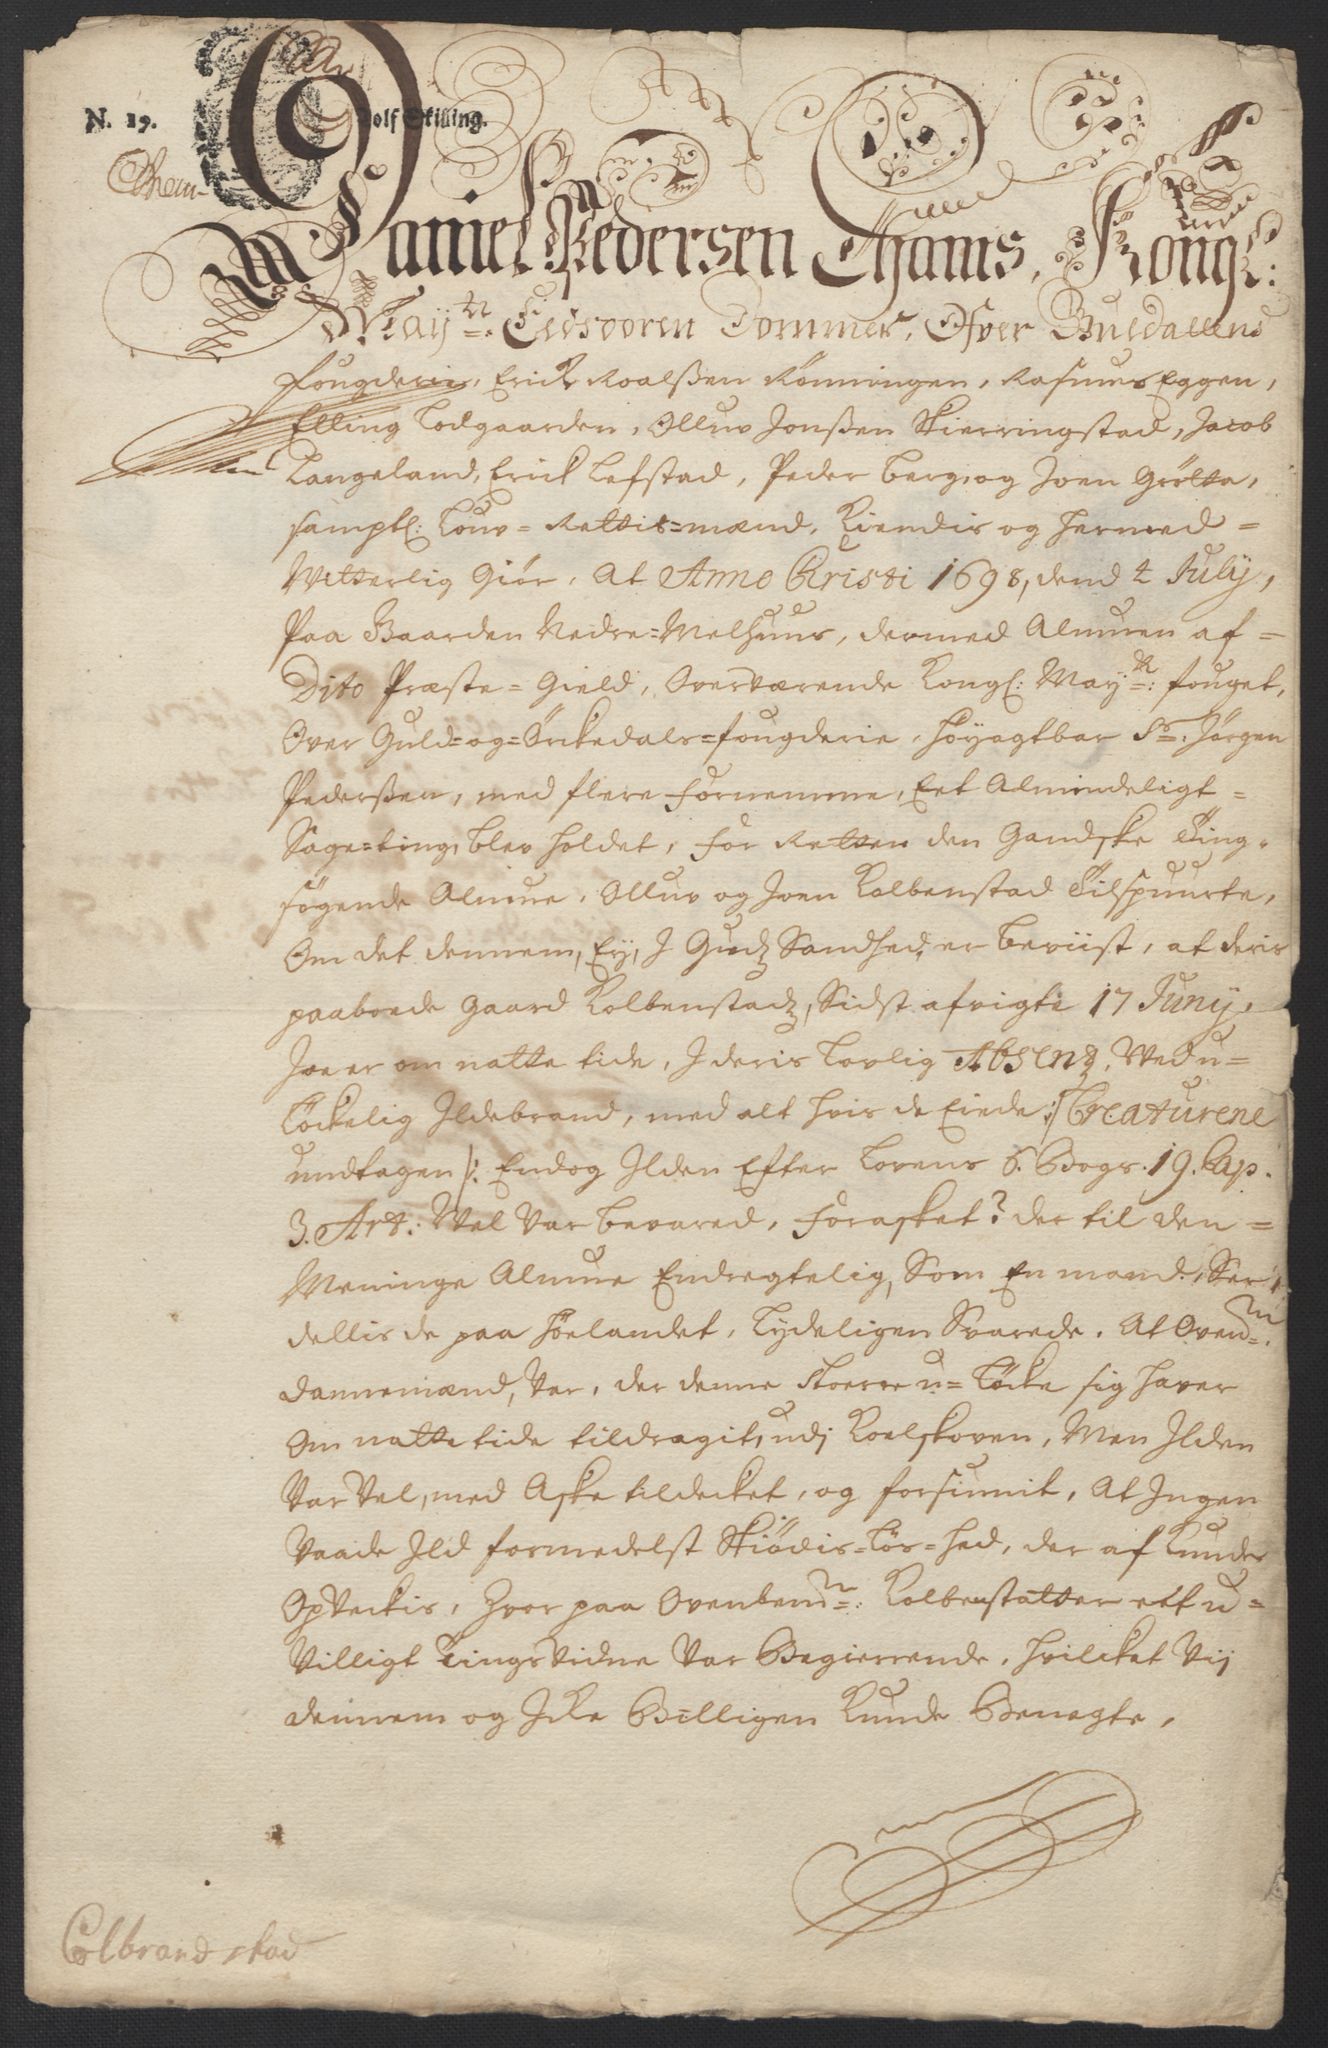 N. 19. Tolf Skilling.
Daniel Pedersen Thams, Kongl:
Mayts. Eedsvoren Sorenskriver, Ofver Guldallens
fougderie, Erick Roalßen Rönningen, Rasmus Eggen,
Elling Lodgaarden, Olluv Jonßen Skierringstad, Jacob
Langeland, Erick Lefstad, Peder berg, og Joen Grötta,
samptl: Louv=Rettis=mænd, Kiendis og hermed=
Witterlig Giör, At Anno Christi 1698, dend 2 July,
Paa Gaarden Nedre=Melhuus, dermed Almuen af=
Dito Præste=Gield, Overværende Kongl: Mayts: fouget,
Over Guld=og=Örckedals=fougderie, Höyagtbar Sr. Jørgen
Pederßen, med flere Fornemme, Eet Almindeligt=
Sage=ting, blev holdet, for Retten den Gandske Ting-
søgende Almue, Olluv og Joen Kolbenstad Tilspuurte,
Om det dennem, Ey, J Gudz Sandhed, er beviist, at deris
paaboede Gaard Kolbenstadz, Sidst afvigte 17 Juny,
Joe er om natte tide, J deris lovlig Absenz, Ved u=
löckelig Jldebrand, med alt hvis de Eiede /: Creaturene
undtagen :/ Endog Jlden Efter Lovens 6. Bogs. 19. Cap.
3. Art: Vel Var bevared, Forasket? der til den=
Meninge Almue Endregtelig, Som En mand, Ser
dellis de paa Höelandet, Tydeligen Svarede, At Ovenn.
dannemænd, Var, der denne stoerre u=löcke sig haver
Om natte tide tildragit, udj Koelskoven, Men Jlden
Var Vel, med Aske tildecket, og forsiunit, At Jngen
Vaade Jld formedelst Skiödis=lös=hed, der af kunde
OpVeckis, Hvor paa Ovenbemn: Kolbenstatter ett u=
Villigt TingsVidne Var Begierrende, hvilcket Vij
dennem og Icke Billigen Kunde Benegte,
Colbrandstad